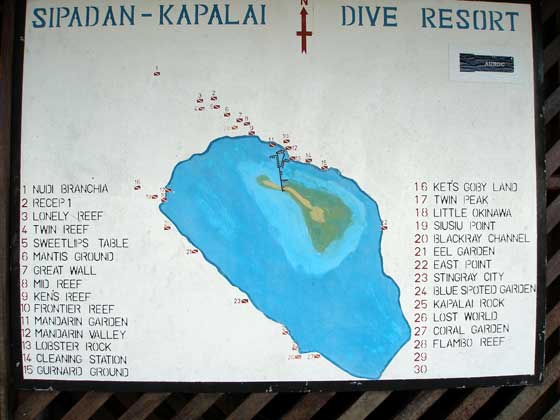 SIPADAN-KAPALAI DIVE RESORT
N
1 NUDI BRANCHIA
2 RECEP 1
3 LONELY REEF
4 TWIN REEF
5 SWEETLIPS TABLE
6 MANTIS GROUND
7 GREAT WALL
8 MID REEF
9 KEN'S REEF
10 FRONTIER REEF
11 MANDARIN GARDEN
12 MANDARIN VALLEY
13 LOBSTER ROCK
14 CLEANING STATION
15 GURNARD GROUND
16 KET'S GOBY LAND
17 TWIN PEAK
18 LITTLE OKINAWA
19 SIUSIU POINT
20 BLACKRAY CHANNEL
21 EEL GARDEN
22 EAST POINT
23 STINGRAY CITY
24 BLUE SPOTED GARDEN
25 KAPALAI ROCK
26 LOST WORLD
27 CORAL GARDEN
28 FLAMBO REEF
29
30